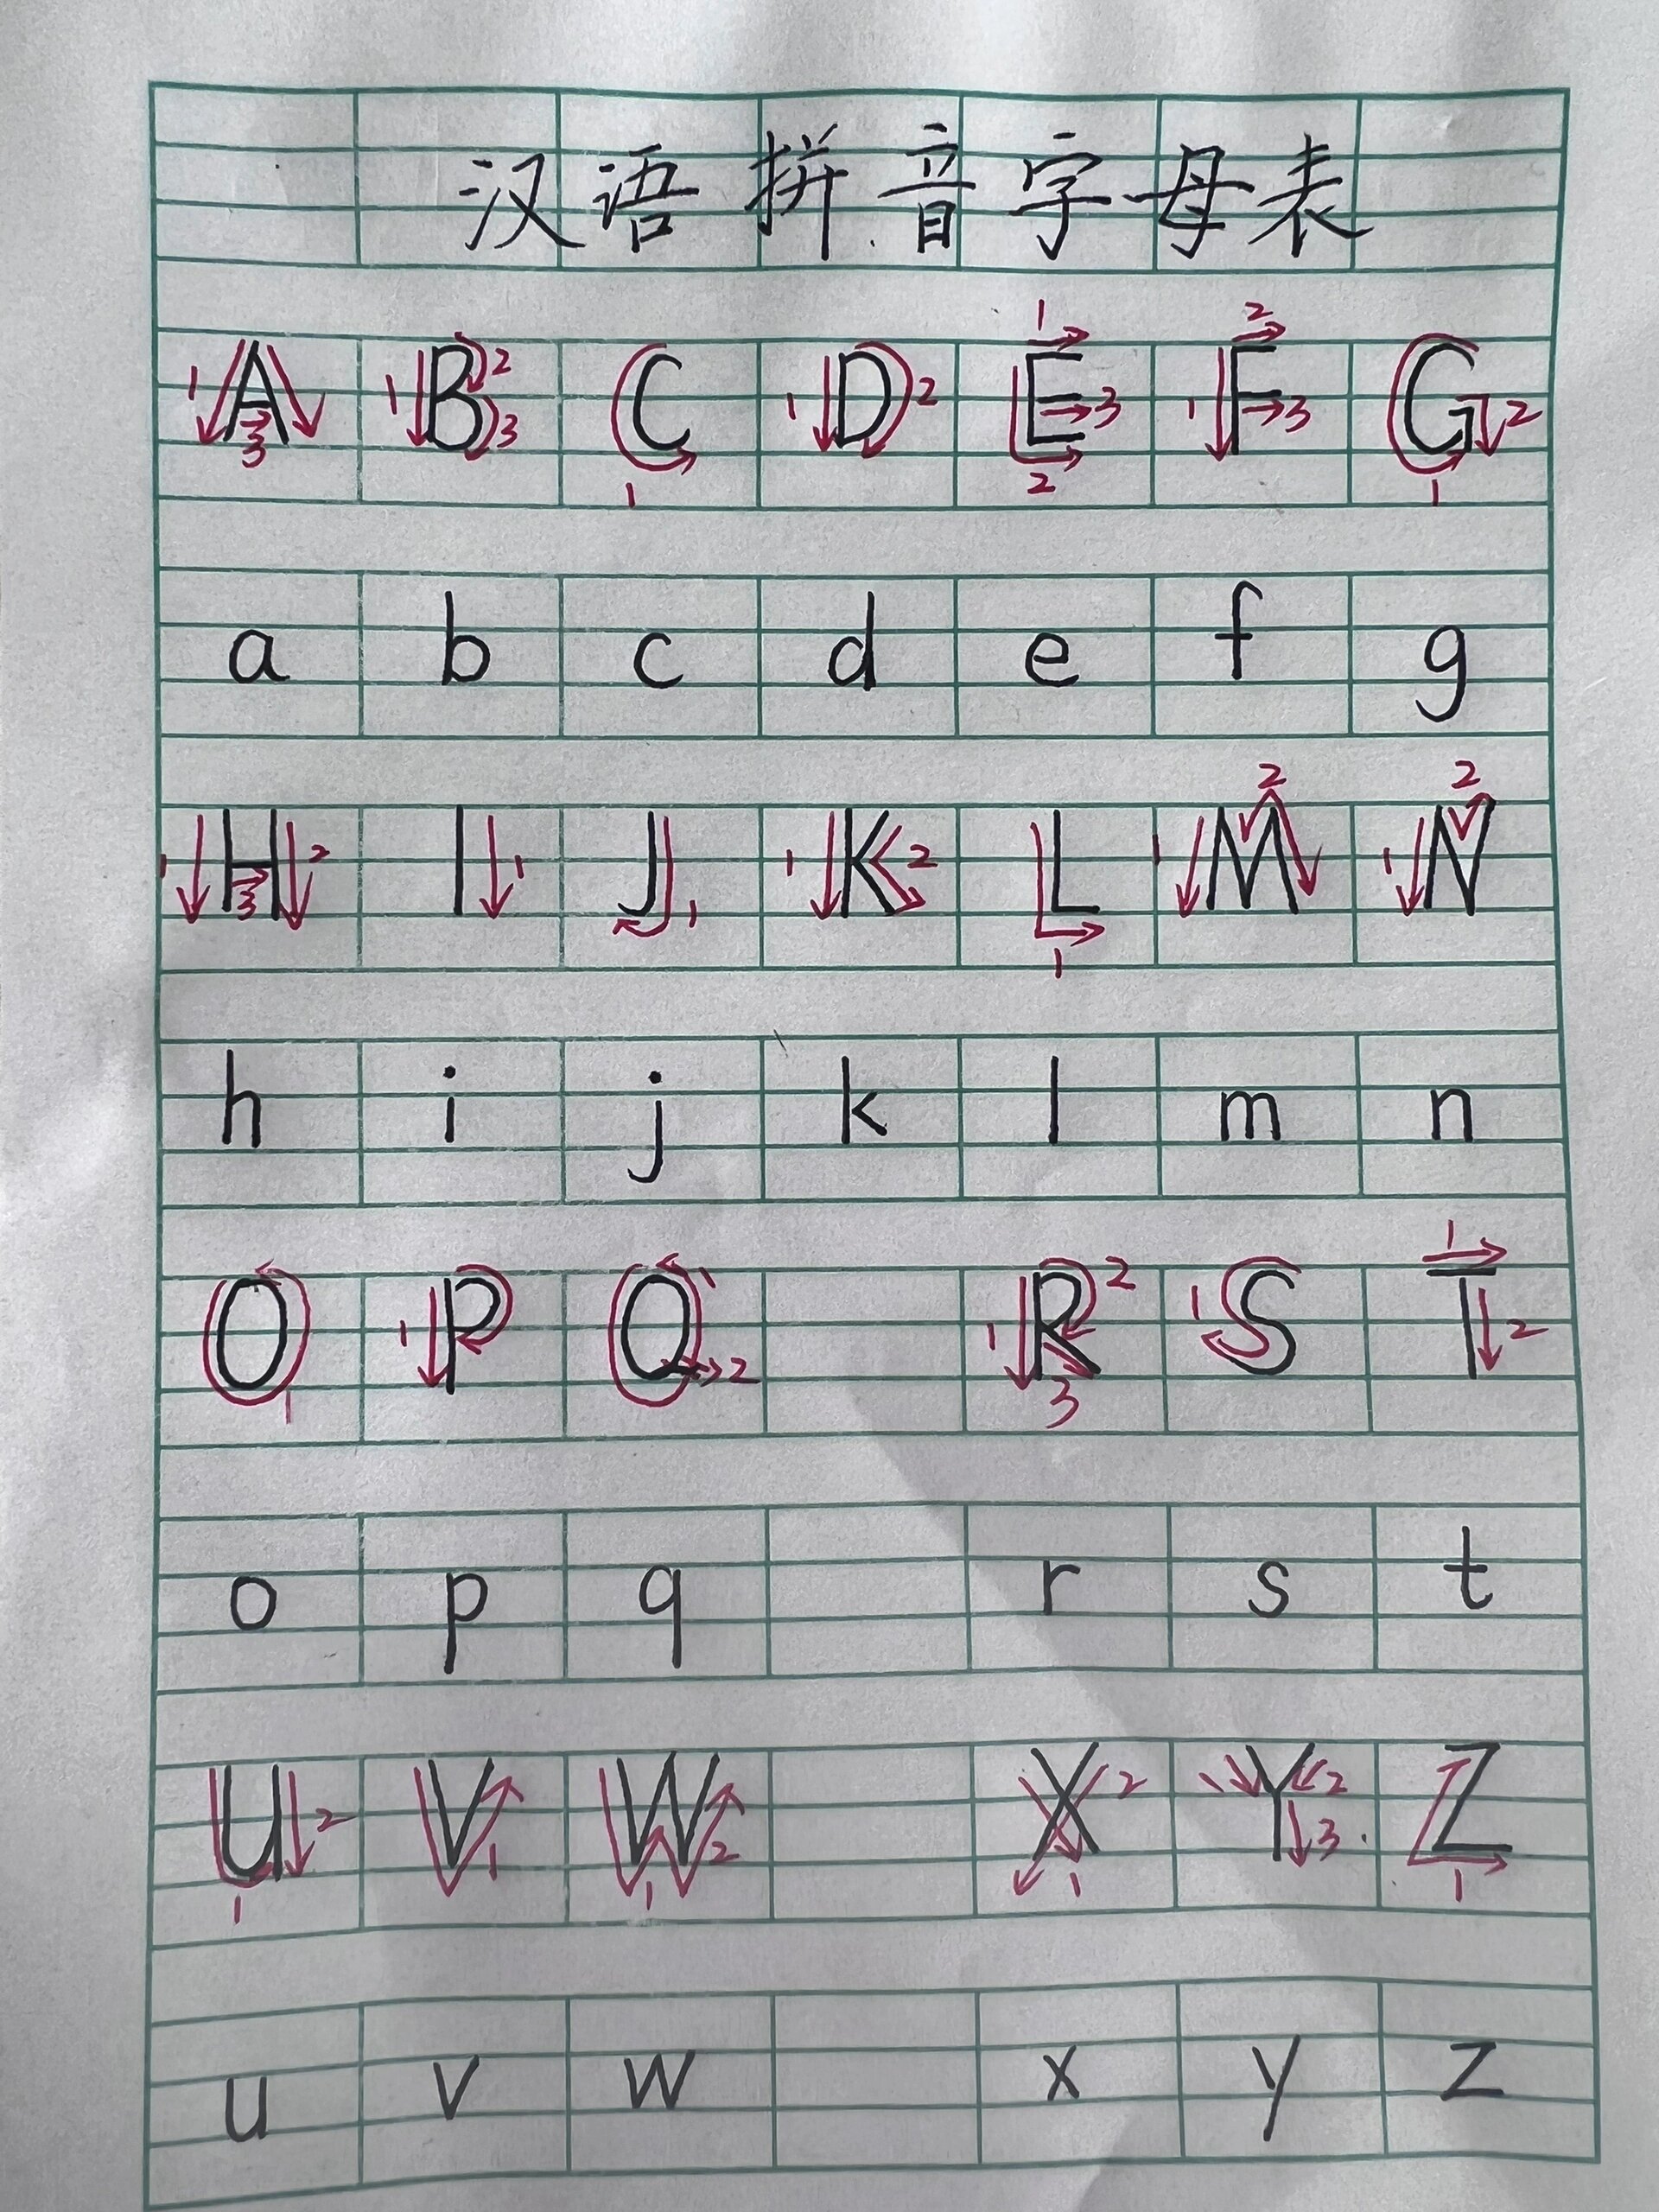 汉语拼音字母表
A B C D E F G
a b c d e f g
H I J K L M N
h i j k l m n
O P Q R S T
o p q r s t
U V W X Y Z
u v w x y z